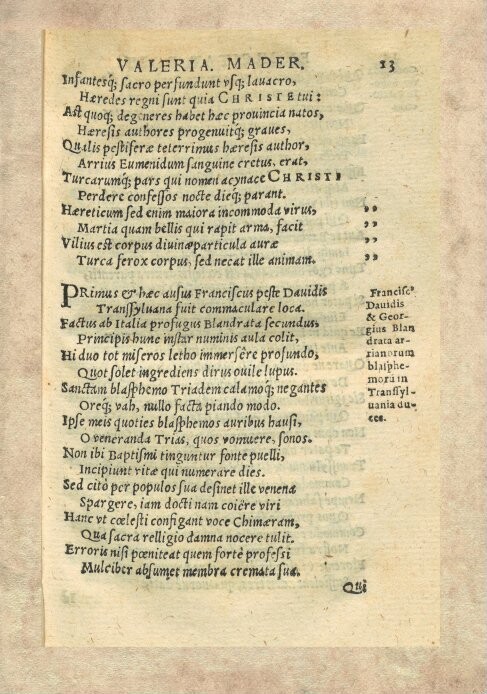 VALERIA. MADER. 13
Infantesq́; sacro perfundunt vsq; lauacro,
Hæredes regni sunt quia CHRISTE tui:
Ast quoq; degeneres habet hæc prouincia natos,
Hæresis authores progenuitq́; graues,
Qualis pestiferæ teterrimus hæresis author,
Arrius Eumenidum sanguine cretus, erat,
Turcarumq́; pars qui nomen acynace CHRISTI
Perdere confessos nocte dieq; parant.
Hæreticum sed enim maiora incommoda virus, ,,
Martia quam bellis qui rapit arma, facit ,,
Vilius est corpus diuinæ particula auræ ,,
Turca ferox corpus, sed necat ille animam. ,,
PRimus & hæc ausus Franciscus peste Dauidis
Transsyluana fuit commaculare loca.
Factus ab Italia profugus Blandrata secundus,
Principis hunc instar numinis aula colit,
Hi duo tot miseros letho immersêre profundo,
Quot solet ingrediens dirus ouile lupus.
Sanctam blasphemo Triadem calamoq́; negantes
Oreq́; vah, nullo facta piando modo.
Ipse meis quoties blasphemos auribus hausi,
O veneranda Trias, quos vomuere, sonos.
Non ibi Baptismi tinguntur fonte puelli,
Incipiunt vitæ qui numerare dies.
Sed citò per populos sua desinet ille venena
Spargere, iam docti nam coiêre viri
Hanc vt cœlesti configant voce Chimæram,
Qua sacra relligio damna nocere tulit.
Erroris nisi pœniteat quem fortè professi
Mulciber absumet membra cremata sua.
Quæ
Francisc⁹
Dauidis
& Geor-
gius Blan
drata ar-
rianorum
blasphe-
morū in
Transsyl-
uania du-
ces.